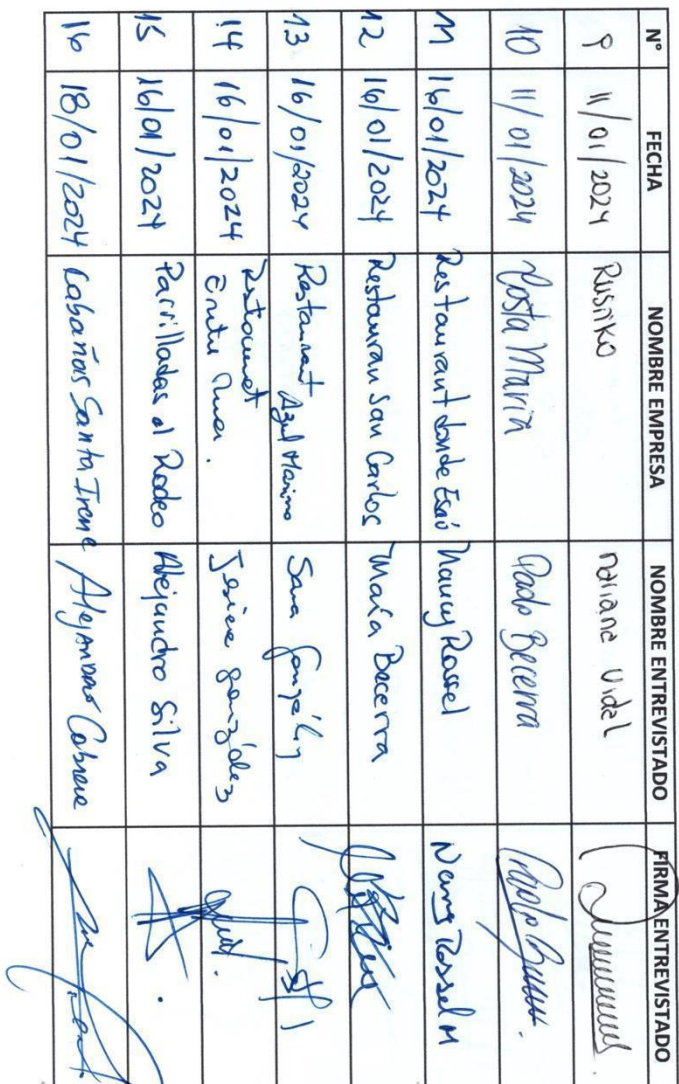 N° FECHA NOMBRE EMPRESA NOMBRE ENTREVISTADO FIRMA ENTREVISTADO
9 11/01/2024 Rustiko Mariana Vidal
10 11/01/2024 Costa Marin Paolo Becerra
11 16/01/2024 Restaurant donde Esaú Nancy Rossel Nancy Rossel M
12 16/01/2024 Restauran San Carlos María Becerra
13 16/01/2024 Restaurant Azul Marino Sara
14 16/01/2024 Entre González
15 16/01/2024 Parrilladas el Rodeo Alejandro Silva
16 18/01/2024 Cabañas Santa Irene Alejandro Cabrera